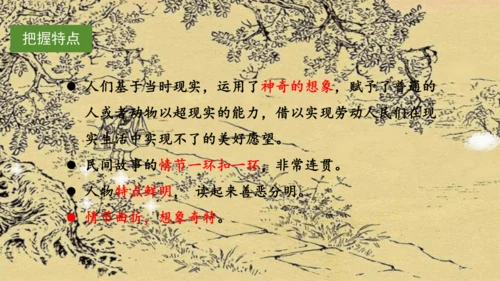 把握特点
● 人们基于当时现实，运用了神奇的想象，赋予了普通的
人或者动物以超现实的能力，借以实现劳动人民们在现
实生活中实现不了的美好愿望。
● 民间故事的情节一环扣一环，非常连贯。
● 人物特点鲜明， 读起来善恶分明。
● 情节曲折，想象奇特。